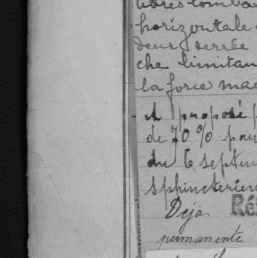 horizontale
che limitan
la force ma
et proposé p
de 70% pou
du 6 septem
sphincterien
Déja Ré
permanente